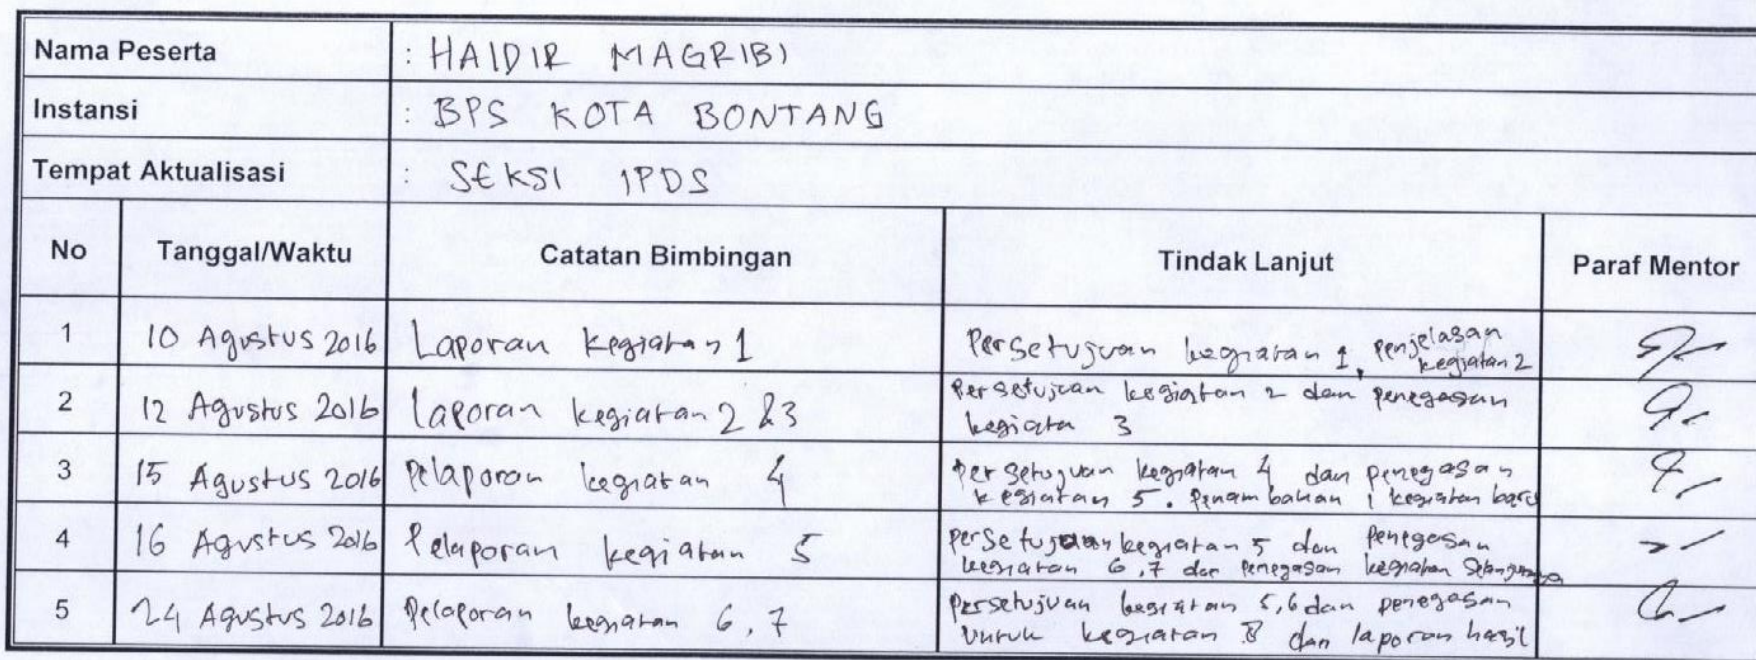 Nama Peserta : HAIDIR MAGRIBI
Instansi : BPS KOTA BONTANG
Tempat Aktualisasi : SEKSI IPDS
No Tanggal/Waktu Catatan Bimbingan Tindak Lanjut Paraf Mentor
1 10 Agustus 2016 Laporan kegiatan 1 Persetujuan kegiatan 1, penjelasan
kegiatan 2
2 12 Agustus 2016 Laporan kegiatan 2 & 3 Persetujuan kegiatan 2 dan penegasan
kegiatan 3
3 15 Agustus 2016 Pelaporan kegiatan 4 Persetujuan kegiatan 4 dan penegasan
kegiatan 5. Penambahan 1 kegiatan baru
4 16 Agustus 2016 Pelaporan kegiatan 5 Persetujuan kegiatan 5 dan Penegasan
kegiatan 6,7 dan penegasan kegiatan selanjutnya
5 24 Agustus 2016 Pelaporan kegiatan 6,7 Persetujuan kegiatan 5,6 dan penegasan
untuk kegiatan 8 dan laporan hasil